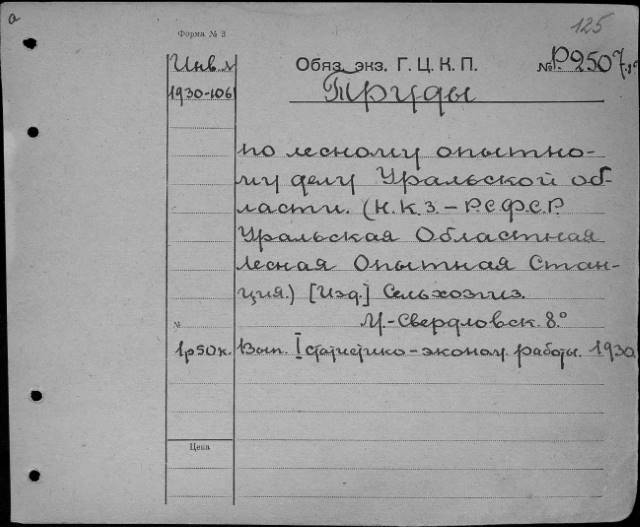 а
125
Форма № 3
Инв. №
Обяз. экз. Г. Ц. К. П.
№ Р2507
1930-106
Труды
по лесному опытно-
му делу Уральской об-
ласти. (Н.К.З. – Р.С.Ф.С.Р.
Уральская Областная
Лесная Опытная Стан-
ция.) [Изд.] Сельхозгиз.
М-Свердловск. 8.°
№
1р50к. Вып. I статистико-эконом. работы. 1930
Цена